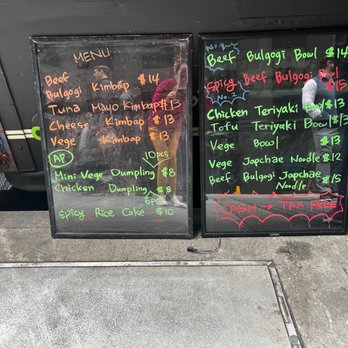 MENU
Beef
Bulgogi Kimbap $14
Tuna Mayo Kimbap $13
Cheese Kimbap $13
Vege Kimbap $13
AP
10pcs
Mini Vege Dumpling $8
Chicken Dumpling $8
6pcs
Spicy Rice Cake $10
No.1
Beef Bulgogi Bowl $14
Spicy Beef Bulgogi Bowl
$15
Chicken Teriyaki Bowl $13
Tofu Teriyaki Bowl $13
Vege Bowl $13
Vege Japchae Noodle $12
Beef Bulgogi Japchae
Noodle $15
CASH → TAX FREE